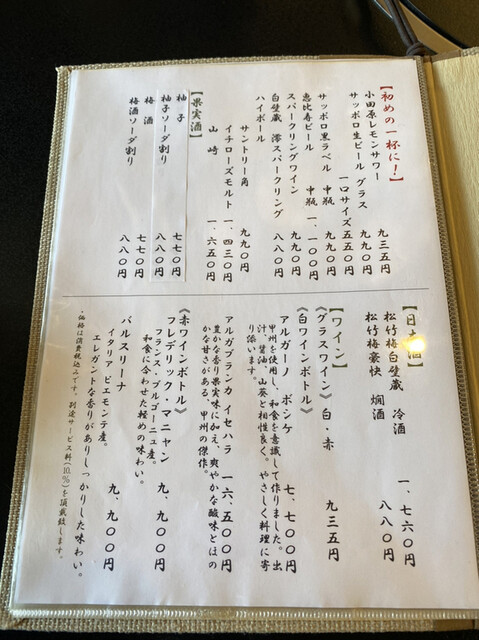 【初めの一杯に！】
小田原レモンサワー 九三五円
サッポロ生ビール グラス 九九〇円
一口サイズ 五五〇円
サッポロ黒ラベル 中瓶 九九〇円
恵比寿ビール 中瓶 一、一〇〇円
スパークリングワイン 九九〇円
白壁蔵 澪スパークリング 八八〇円
ハイボール
サントリー角 九九〇円
イチローズモルト 一、四三〇円
山崎 一、六五〇円
【果実酒】
柚子 七七〇円
柚子ソーダ割り 八八〇円
梅酒 七七〇円
梅酒ソーダ割り 八八〇円
【日本酒】
松竹梅白壁蔵 冷酒 一、七六〇円
松竹梅豪快 燗酒 八八〇円
【ワイン】
《グラスワイン》白・赤 九三五円
《白ワインボトル》
アルガーノ ボシケ 七、七〇〇円
甲州を使用し、和食を意識して作りました。出
汁、醤油、山葵と相性良く。やさしく料理に寄
り添います。
アルガブランカ イセハラ 一六、五〇〇円
豊かな香り果実味に加え、爽やかな酸味とほの
かな甘さがある、甲州の傑作。
《赤ワインボトル》
フレデリック・マニャン 九、九〇〇円
フランス・ブルゴーニュ産。
和食に合わせた軽めの味わい。
バルスリーナ 九、九〇〇円
イタリア ピエモンテ産。
エレガントな香りがありしっかりした味わい。
・価格は消費税込みです。別途サービス料(10%)を頂戴致します。